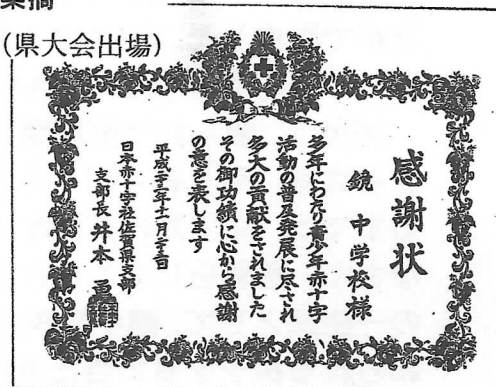 (県大会出場)
感謝状
鏡中学校様
多年にわたり青少年赤十字
活動の普及発展に尽され
多大の貢献をされました
その御功績に心から感謝
の意を表します
日本赤十字社佐賀県支部
支部長 井本勇